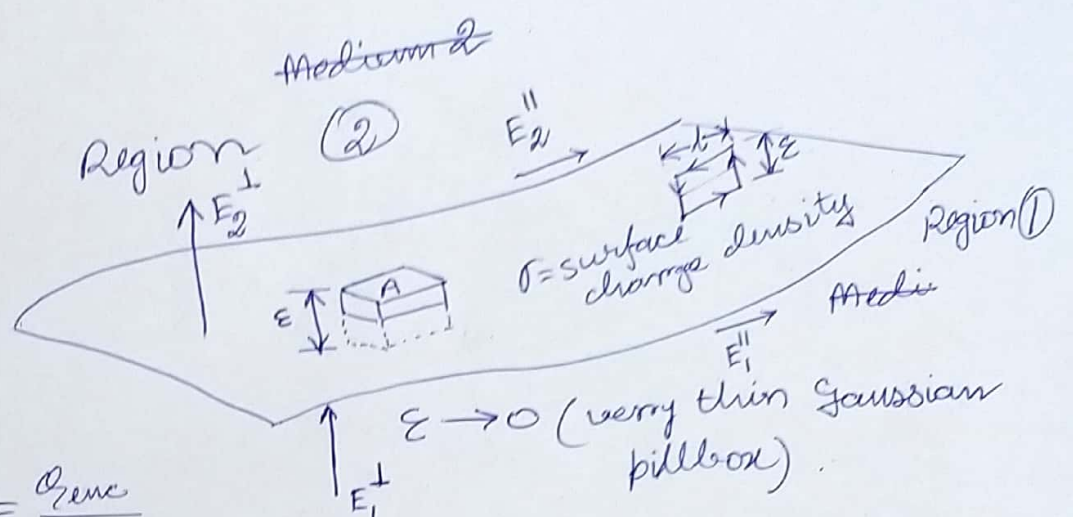 Medium 2
Region ②
E₂^⊥
E₂^∥
l
ε
Region ①
σ = surface
charge density
Medi
A
ε
E₁^∥
ε → 0 (verry thin Gaussian
pillbox).
E₁^⊥
= Qenc